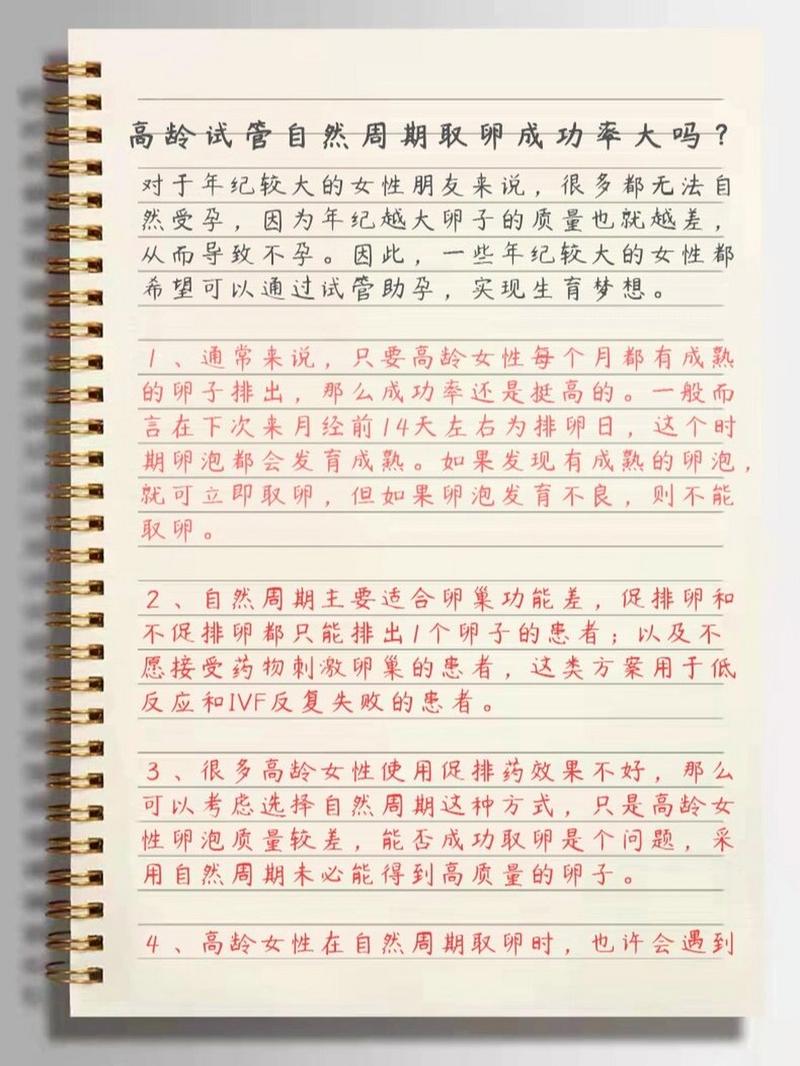 高龄试管自然周期取卵成功率大吗？
对于年纪较大的女性朋友来说，很多都无法自
然受孕，因为年纪越大卵子的质量也就越差，
从而导致不孕。因此，一些年纪较大的女性都
希望可以通过试管助孕，实现生育梦想。
1、通常来说，只要高龄女性每个月都有成熟
的卵子排出，那么成功率还是挺高的。一般而
言在下次来月经前14天左右为排卵日，这个时
期卵泡都会发育成熟。如果发现有成熟的卵泡，
就可立即取卵，但如果卵泡发育不良，则不能
取卵。
2、自然周期主要适合卵巢功能差，促排卵和
不促排卵都只能排出1个卵子的患者；以及不
愿接受药物刺激卵巢的患者，这类方案用于低
反应和IVF反复失败的患者。
3、很多高龄女性使用促排药效果不好，那么
可以考虑选择自然周期这种方式，只是高龄女
性卵泡质量较差，能否成功取卵是个问题，采
用自然周期未必能得到高质量的卵子。
4、高龄女性在自然周期取卵时，也许会遇到